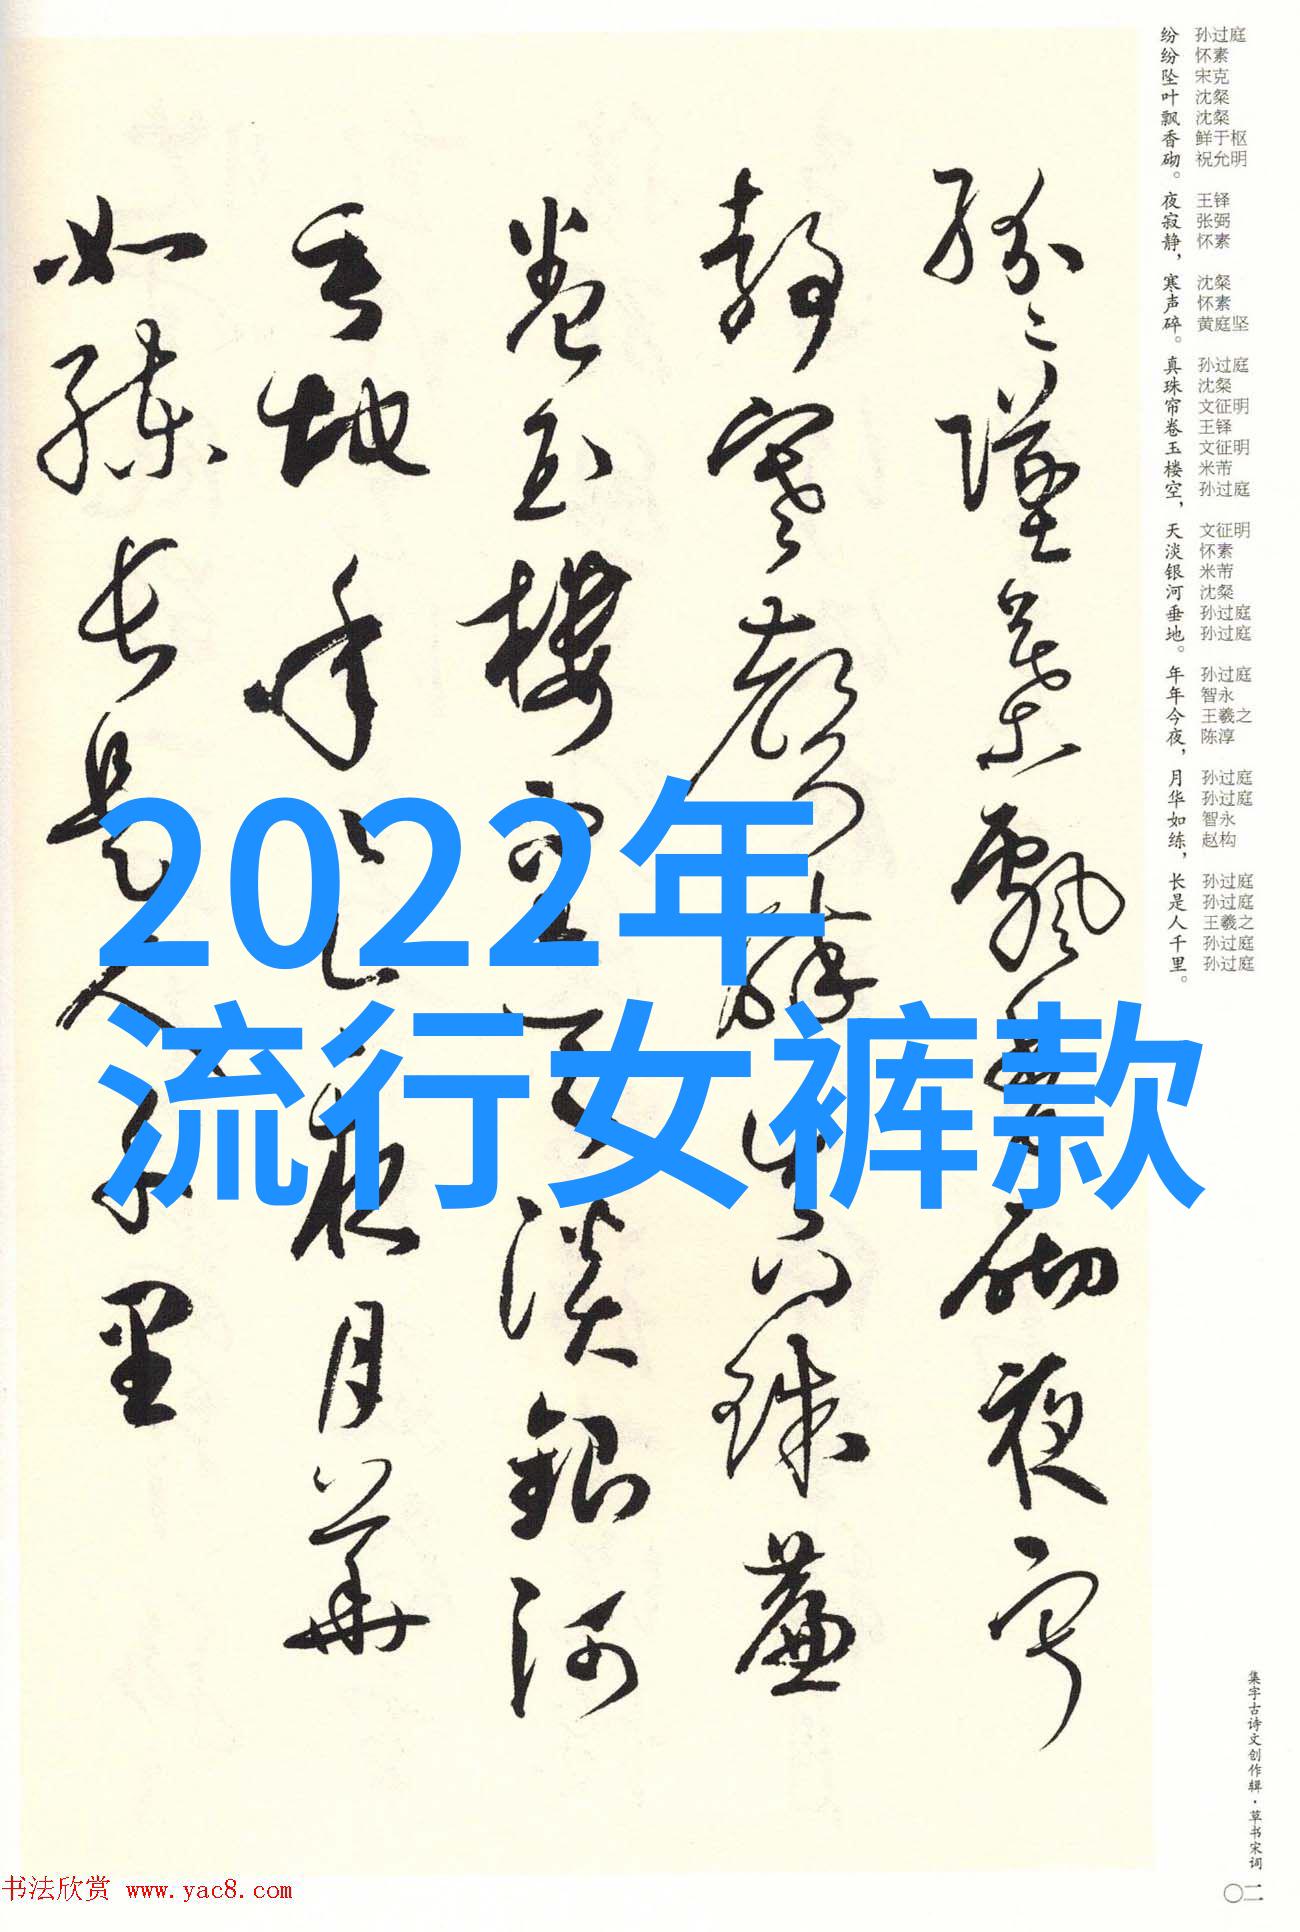 纷纷坠叶飘香砌。夜寂静，寒声碎。真珠帘卷玉楼空，天淡银河垂地。年年今夜，月华如练，长是人千里。
孙过庭 怀素 宋克 沈粲 沈粲 鲜于枢 祝允明 王铎 张弼 怀素 沈粲 怀素 黄庭坚 孙过庭 沈粲 文征明 王铎 文征明 米芾 孙过庭 文征明 怀素 米芾 沈粲 孙过庭 孙过庭 孙过庭 智永 王羲之 陈淳 孙过庭 孙过庭 智永 赵构 孙过庭 孙过庭 王羲之 孙过庭 孙过庭
纷纷坠叶飘香砌夜寂
静寒声碎真珠帘
卷玉楼空天淡银河
垂地年年今夜月华
如练长是人千里
2022年
流行女裤款
集字古诗文创作辑·草书宋词
〇二
书法欣赏 www.yac8.com